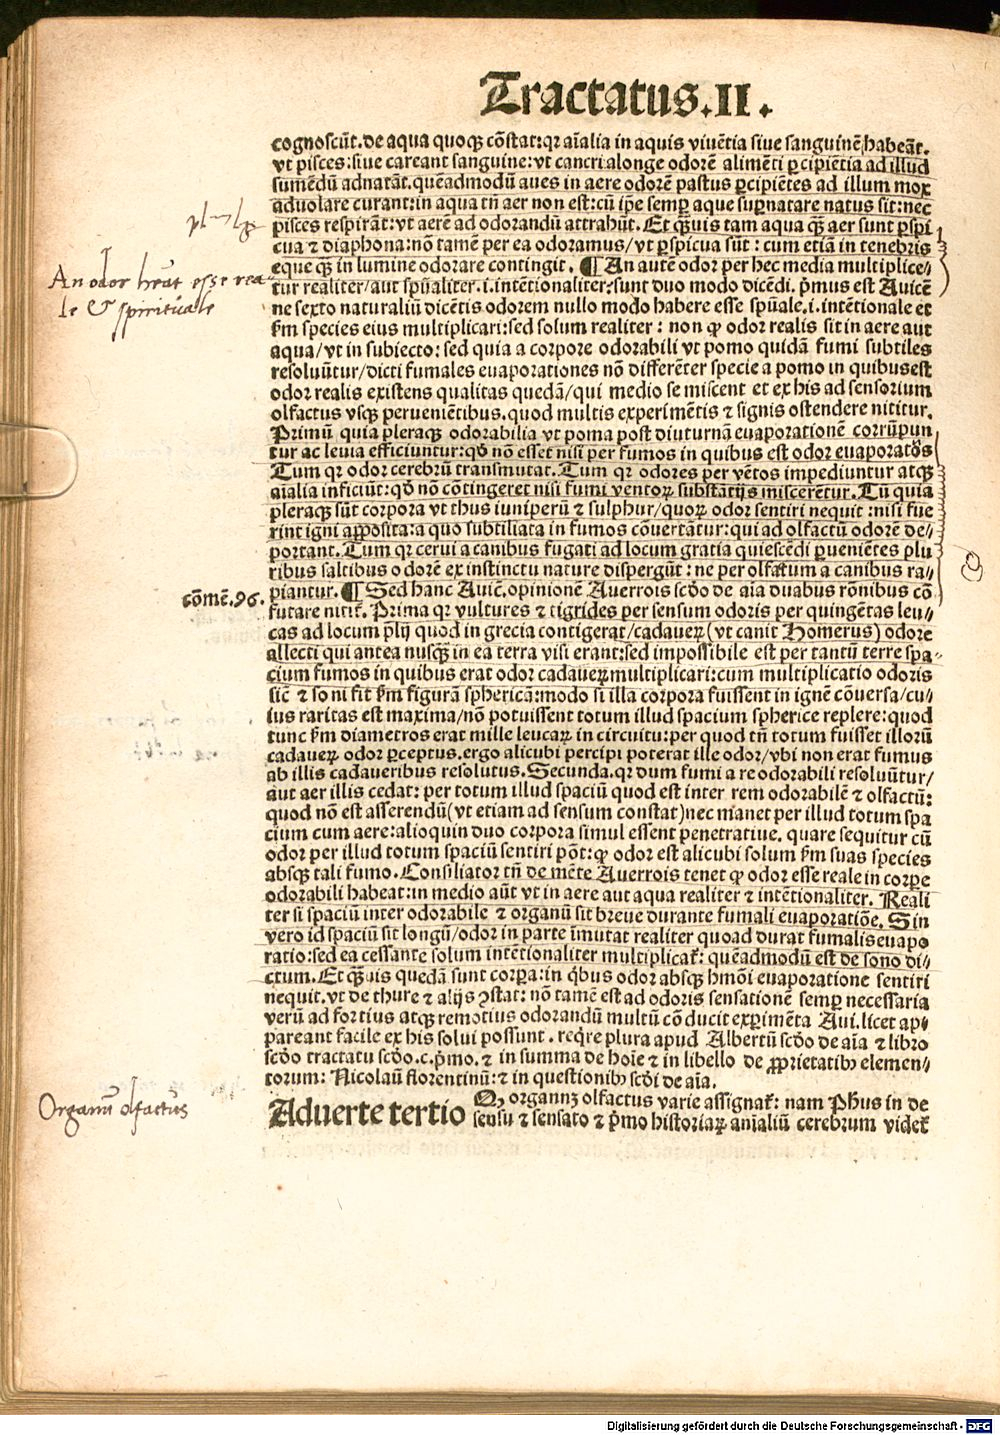 Tractatus.II.
cognoscūt. de aqua quoqꝫ cōstat: qꝛ aīalia in aquis viuētia siue sanguinē habeāt.
vt pisces: siue careant sanguine: vt cancri alonge odorē alimēti ꝑcipiētia ad illud
sumēdū adnatāt. quēadmodū aues in aere odorē pastus ꝑcipiētes ad illum mox
aduolare curant: in aqua tn̄ aer non est: cū ip̄e semꝑ aque suꝑnatare natus sit: nec
pisces respirāt: vt aerē ad odorandū attrahūt. Et qꝫuis tam aqua qꝫ aer sunt ꝑspi
cua ⁊ diaphona: nō tamē per ea odoramus/ vt ꝑspicua sūt: cum etiā in tenebris
eque qꝫ in lumine odorare contingit. ¶ An autē odor per hec media multiplice/
An odor hēat esse rea-
le & spirituale
tur realiter/ aut spūaliter. i. intētionaliter: sunt duo modo dicēdi. p̄mus est Auicē
ne sexto naturaliū dicētis odorem nullo modo habere esse spūale. i. intētionale et
ẜm species eius multiplicari: sed solum realiter: non ꝙ odor realis sit in aere aut
aqua/ vt in subiecto: sed quia a corpore odorabili vt pomo quidā fumi subtiles
resoluūtur/ dicti fumales euaporationes nō differēter specie a pomo in quibus est
odor realis existens qualitas quedā/ qui medio se miscent et ex his ad sensorium
olfactus vsqꝫ perueniētibus. quod multis experimētis ⁊ signis ostendere nititur.
Primū quia pleraqꝫ odorabilia vt poma post diuturnā euaporationē corrūpun
tur ac leuia efficiuntur: qd̄ nō esset nisi per fumos in quibus est odor euaporatōs
Tum qꝛ odor cerebrū transmutat. Tum qꝛ odores per vētos impediuntur atqꝫ
aīalia inficiūt: qd̄ nō cōtingeret nisi fumi ventoꝝ substātijs miscerētur. Tū quia
pleraqꝫ sūt corpora vt thus iuniperū ⁊ sulphur/ quoꝝ odor sentiri nequit: nisi fue
rint igni apposita: a quo subtiliata in fumos cōuertātur: qui ad olfactū odorē de/
portant. Tum qꝛ cerui a canibus fugati ad locum gratia quiescēdi ꝑueniētes plu
ribus saltibus odorē ex instinctu nature dispergūt: ne per olfactum a canibus ra/
cōmē. 96.
piantur. ¶ Sed hanc Auiē. opinionē Auerrois scd̄o de aīa duabus rōnibus cō
futare nitit̄. Prima qꝛ vultures ⁊ tigrides per sensum odoris per quingētas leu/
cas ad locum p̄lij quod in grecia contigerat/ cadaueꝝ (vt canit Homerus) odore
allecti qui antea nusqꝫ in ea terra visi erant: sed impossibile est per tantū terre spa-
cium fumos in quibus erat odor cadaueꝝ multiplicari: cum multiplicatio odoris
sit ⁊ soni fit ẜm figurā sphericā: modo si illa corpora fuissent in ignē cōuersa/ cu/
ius raritas est maxima/ nō potuissent totum illud spacium spherice replere: quod
tunc ẜm diametros erat mille leucaꝝ in circuitu: per quod tn̄ totum fuisset illorū
cadaueꝝ odor ꝑceptus. ergo alicubi percipi poterat ille odor/ vbi non erat fumus
ab illis cadaueribus resolutus. Secunda. qꝛ dum fumi a re odorabili resoluūtur/
aut aer illis cedat: per totum illud spaciū quod est inter rem odorabilē ⁊ olfactū:
quod nō est asserendū (vt etiam ad sensum constat) nec manet per illud totum spa
cium cum aere: alioquin duo corpora simul essent penetratiue. quare sequitur cū
odor per illud totum spaciū sentiri pōt: ꝙ odor est alicubi solum ẜm suas species
absqꝫ tali fumo. Consiliator tn̄ de mēte Auerrois tenet ꝙ odor esse reale in corꝑe
odorabili habeat: in medio aūt vt in aere aut aqua realiter ⁊ intētionaliter. Reali
ter si spaciū inter odorabile ⁊ organū sit breue durante fumali euaporatiōe. Sin
vero id spaciū sit longū/ odor in parte īmutat realiter quoad durat fumalis euapo
ratio: sed ea cessante solum intētionaliter multiplicat̄: quēadmodū est de sono di/
ctum. Et qꝫuis quedā sunt corꝑa: in q̄bus odor absqꝫ hmōi euaporatione sentiri
nequit. vt de thure ⁊ alijs ꝯstat: nō tamē est ad odoris sensationē semꝑ necessaria
verū ad fortius atqꝫ remotius odorandū multū cōducit exꝑimēta Aui. licet ap/
pareant facile ex his solui possunt. req̄re plura apud Albertū scd̄o de aīa ⁊ libro
scd̄o tractatu scd̄o. c. p̄mo. ⁊ in summa de hoīe ⁊ in libello de ꝓprietatibꝰ elemen/
torum: Nicolaū florentinū: ⁊ in questionibꝰ scd̄i de aīa.
Organū olfactus
Aduerte tertio Qꝫ organnꝫ olfactus varie assignat̄: nam Ph̄us in de
sensu ⁊ sensato ⁊ p̄mo historiaꝝ aīaliū cerebrum videt̄
Digitalisierung gefördert durch die Deutsche Forschungsgemeinschaft - DFG